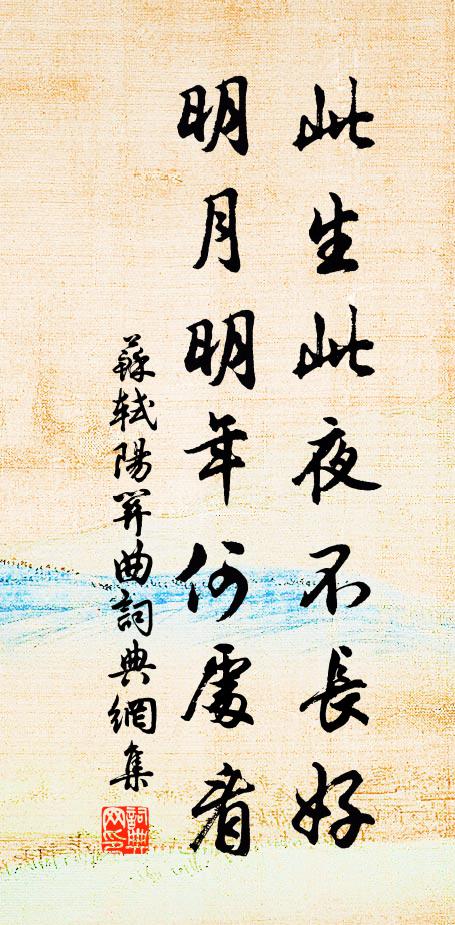 此生此夜不長好
明月明年何處看
蘇軾陽關曲詞典網集
詞典网印